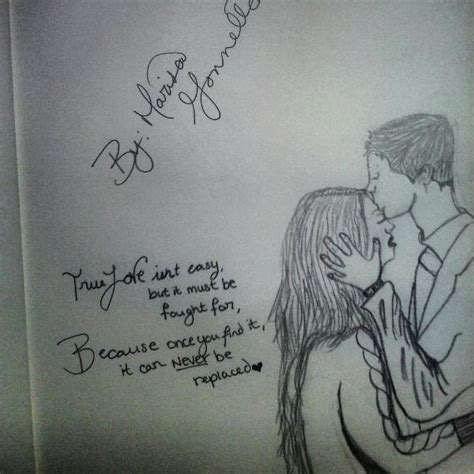 By: Marisa Gonnella
True Love isnt easy,
but it must be
fought for,
Because once you find it,
it can Never be
replaced♥